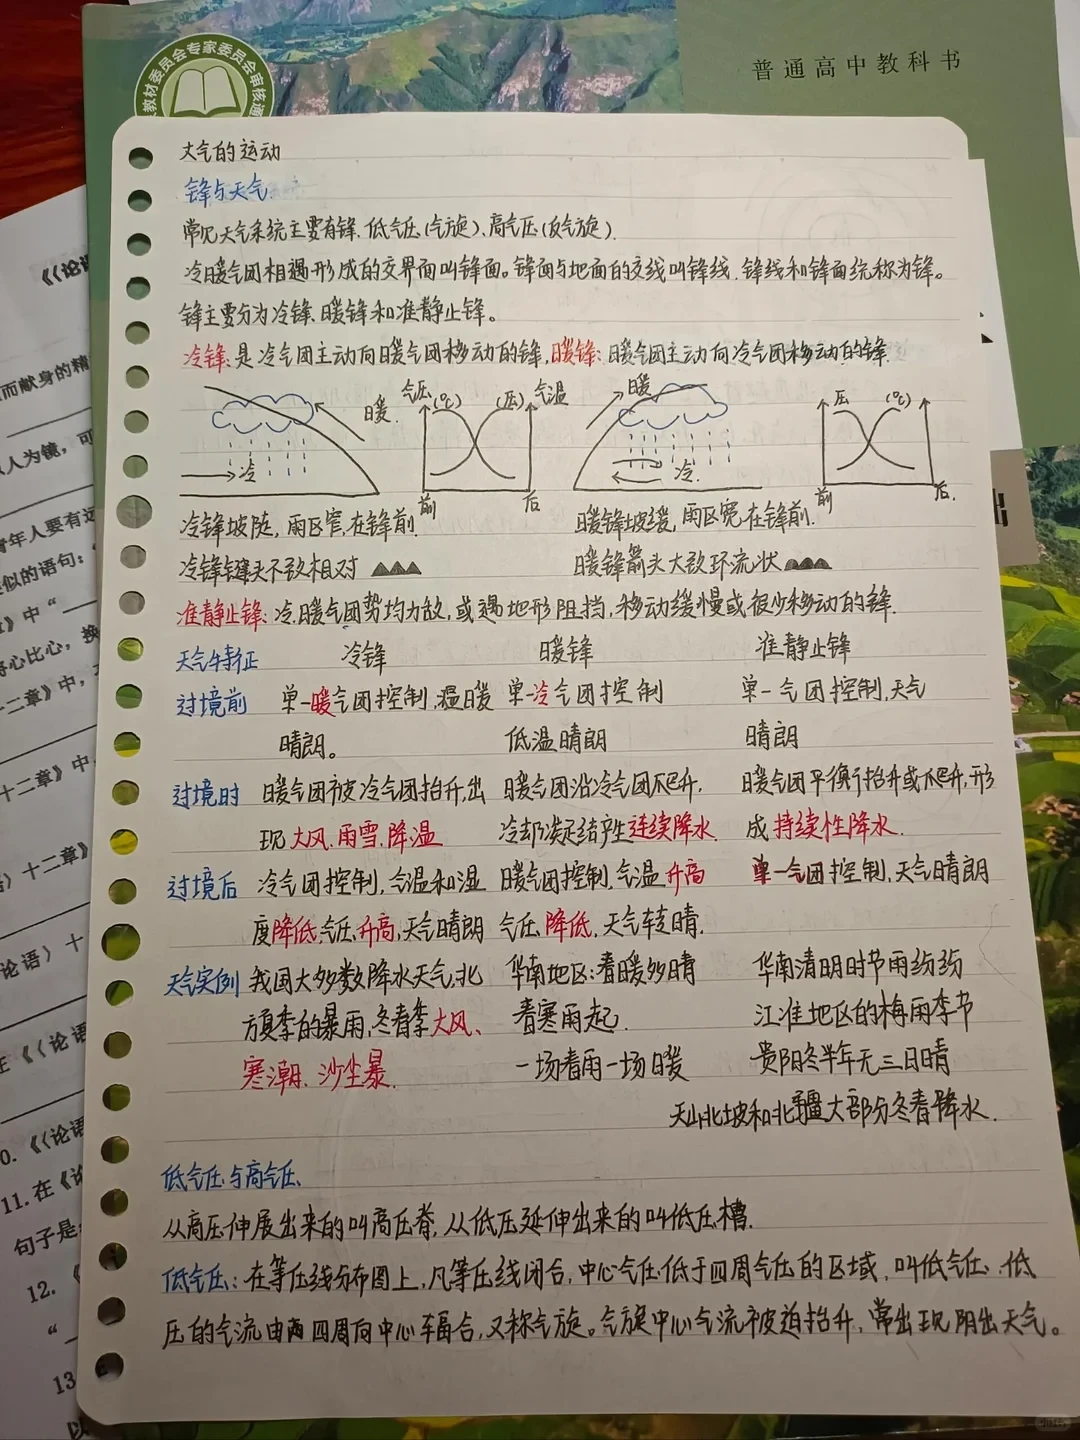 教材委员会专家委员会审核通
普通高中教科书
大气的运动
锋与天气
常见天气系统主要有锋、低气压(气旋)、高气压(反气旋).
冷暖气团相遇形成的交界面叫锋面。锋面与地面的交线叫锋线,锋线和锋面统称为锋。
锋主要分为冷锋、暖锋和准静止锋。
冷锋:是冷气团主动向暖气团移动的锋,暖锋:暖气团主动向冷气团移动的锋.
暖 气压 (℃) (压) 气温 暖 压 (℃)
冷 冷
前 后 前 后.
冷锋坡陡,雨区窄,在锋前. 暖锋坡缓,雨区宽,在锋前.
冷锋 头不致相对 暖锋箭头大致环流状
准静止锋:冷、暖气团势均力敌,或遇地形阻挡,移动缓慢或很少移动的锋.
天气特征 冷锋 暖锋 准静止锋
过境前 单一暖气团控制,温暖 单一冷气团控制 单一气团控制,天气
晴朗。 低温晴朗 晴朗
过境时 暖气团被冷气团抬升,出 暖气团沿冷气团爬升, 暖气团平衡行抬升或爬升,形
现大风、雨雪、降温 冷却凝结产生连续降水. 成持续性降水.
过境后 冷气团控制,气温和湿 暖气团控制,气温升高 单一气团控制,天气晴朗
度降低,气压升高,天气晴朗 气压降低,天气转晴.
天气实例 我国大多数降水天气,北 华南地区:春暖多晴 华南清明时节雨纷纷
方夏季的暴雨,冬春季大风、 春寒雨起. 江淮地区的梅雨季节
寒潮、沙尘暴. 一场春雨一场暖 贵阳冬半年无三日晴
天山北坡和北疆大部分冬春降水.
低气压与高气压
从高压伸展出来的叫高压脊,从低压延伸出来的叫低压槽.
低气压:在等压线分布图上,凡等压线闭合,中心气压低于四周气压的区域,叫低气压,低
压的气流由四周向中心辐合,又称气旋。气旋中心气流被迫抬升,常出现阴出天气。
《《论语
而献身的精
以人为镜,可
青年人要有远
类似的语句:“
》中“
将心比心,换
十二章》中,
十二章》中,
十二章》
《论语》十
在《《论语
0.《《论语
11.在《论
句子是:
12.《
“
13
以